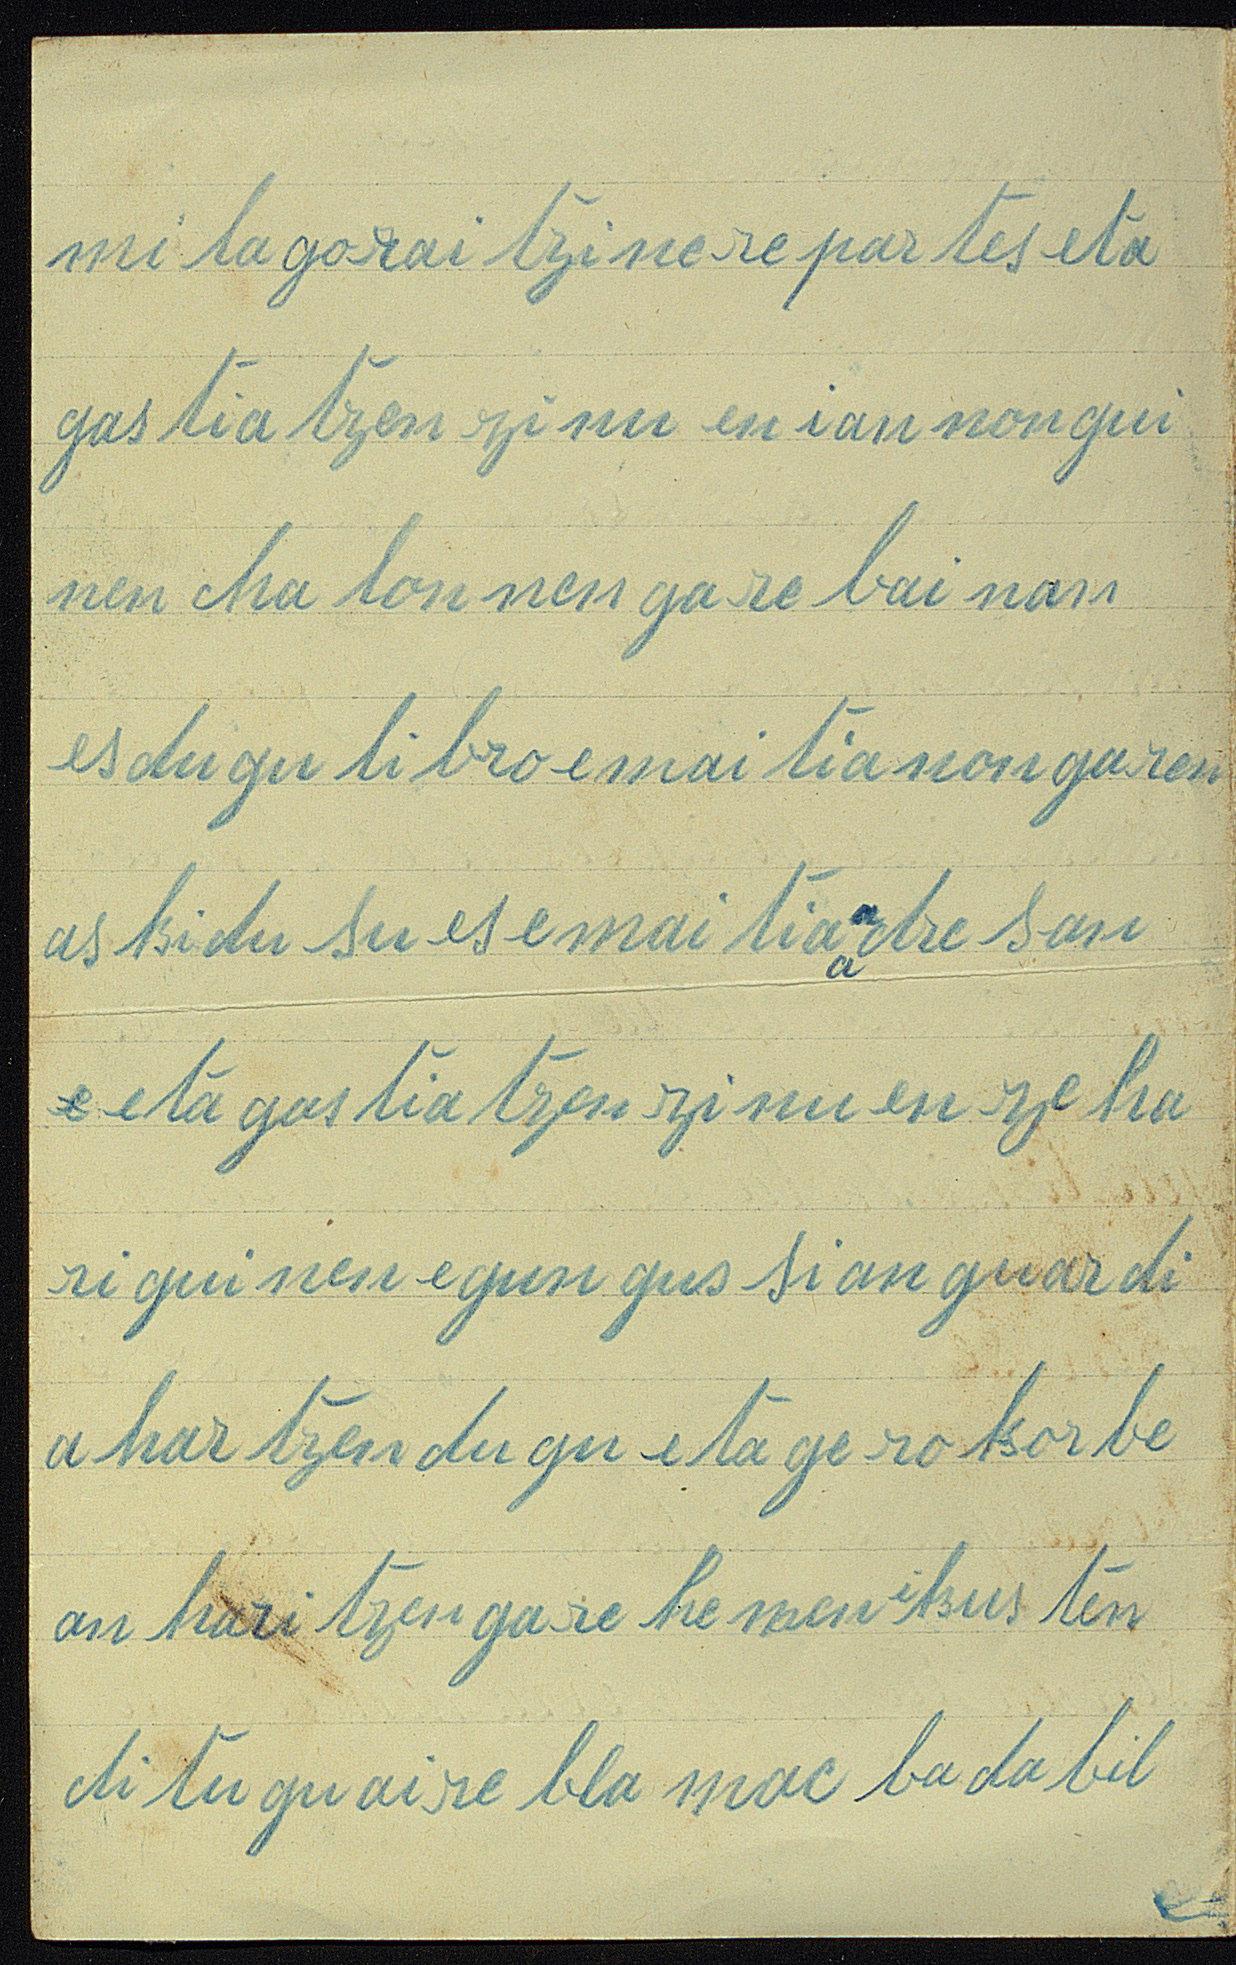 mi la gorai tzi ne re par tes eta
gas tia tzen zi nu en ian non gui
nen cha lon nen ga re bai nan
es du gu li bro e mai tia non garen
as ki du su es e mai tia a dre san
e eta gas tia tzen zi nu en ze ha
ri gui nen egun gus si an guar di
a har tzen du gu eta ge ro kor be
an hari tzen ga re he men ikus ten
di tu gu ai re bla mac ba da bil